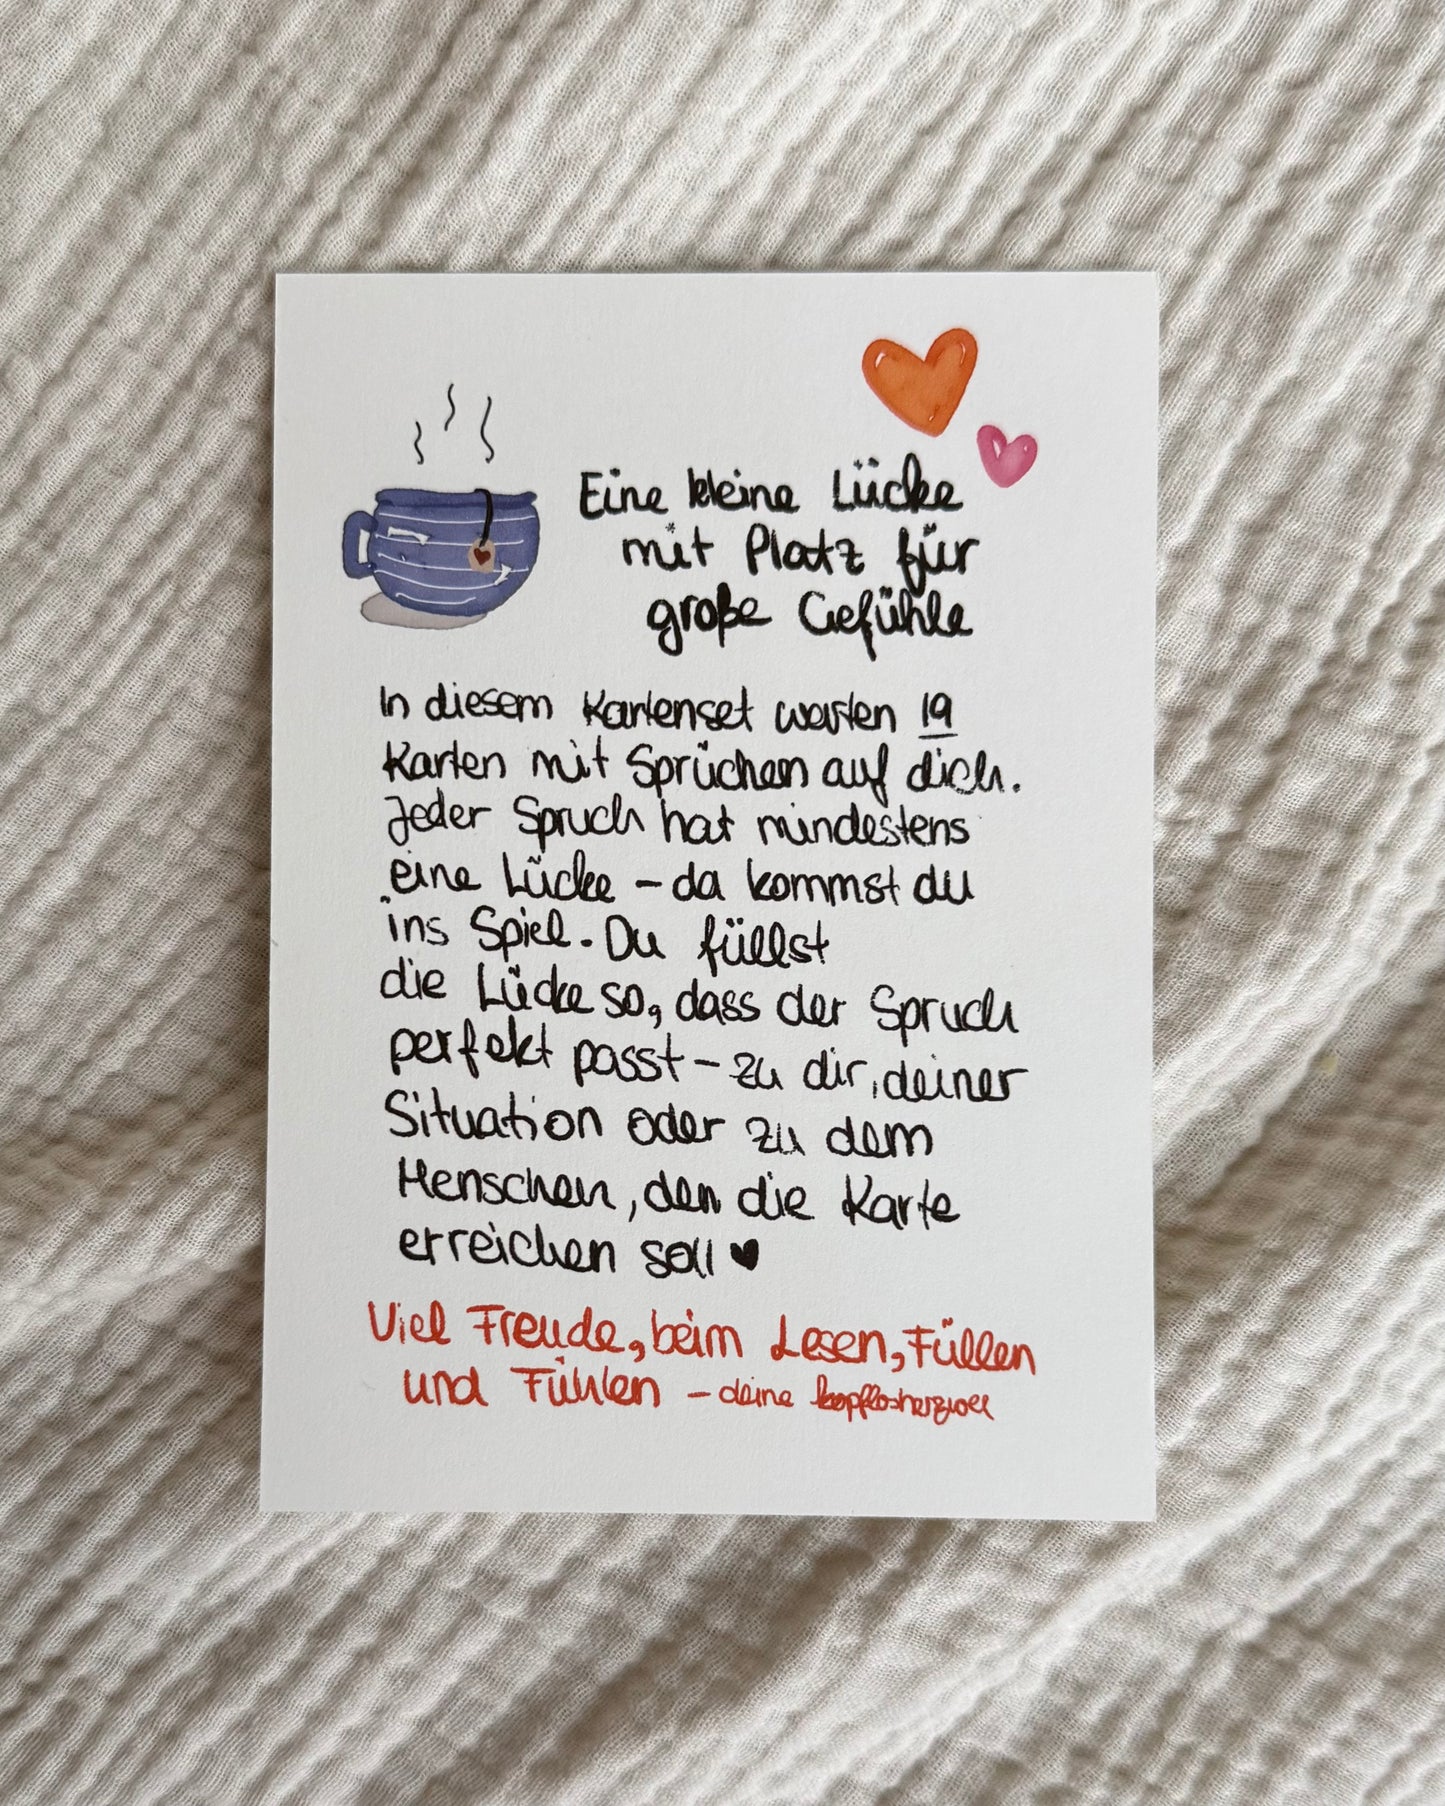 Eine kleine Lücke
mit Platz für
große Gefühle
In diesem Kartenset warten 19
Karten mit Sprüchen auf dich.
Jeder Spruch hat mindestens
eine Lücke – da kommst du
ins Spiel. Du füllst
die Lücke so, dass der Spruch
perfekt passt – zu dir, deiner
Situation oder zu dem
Menschen, den die Karte
erreichen soll ♥
Viel Freude, beim Lesen, Füllen
und Fühlen – deine kopflosherzvoll